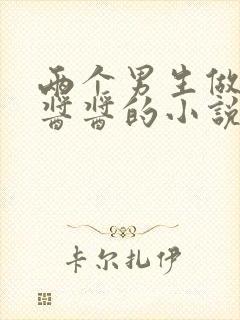 两个男生做
酱酱的小说
卡尔扎伊